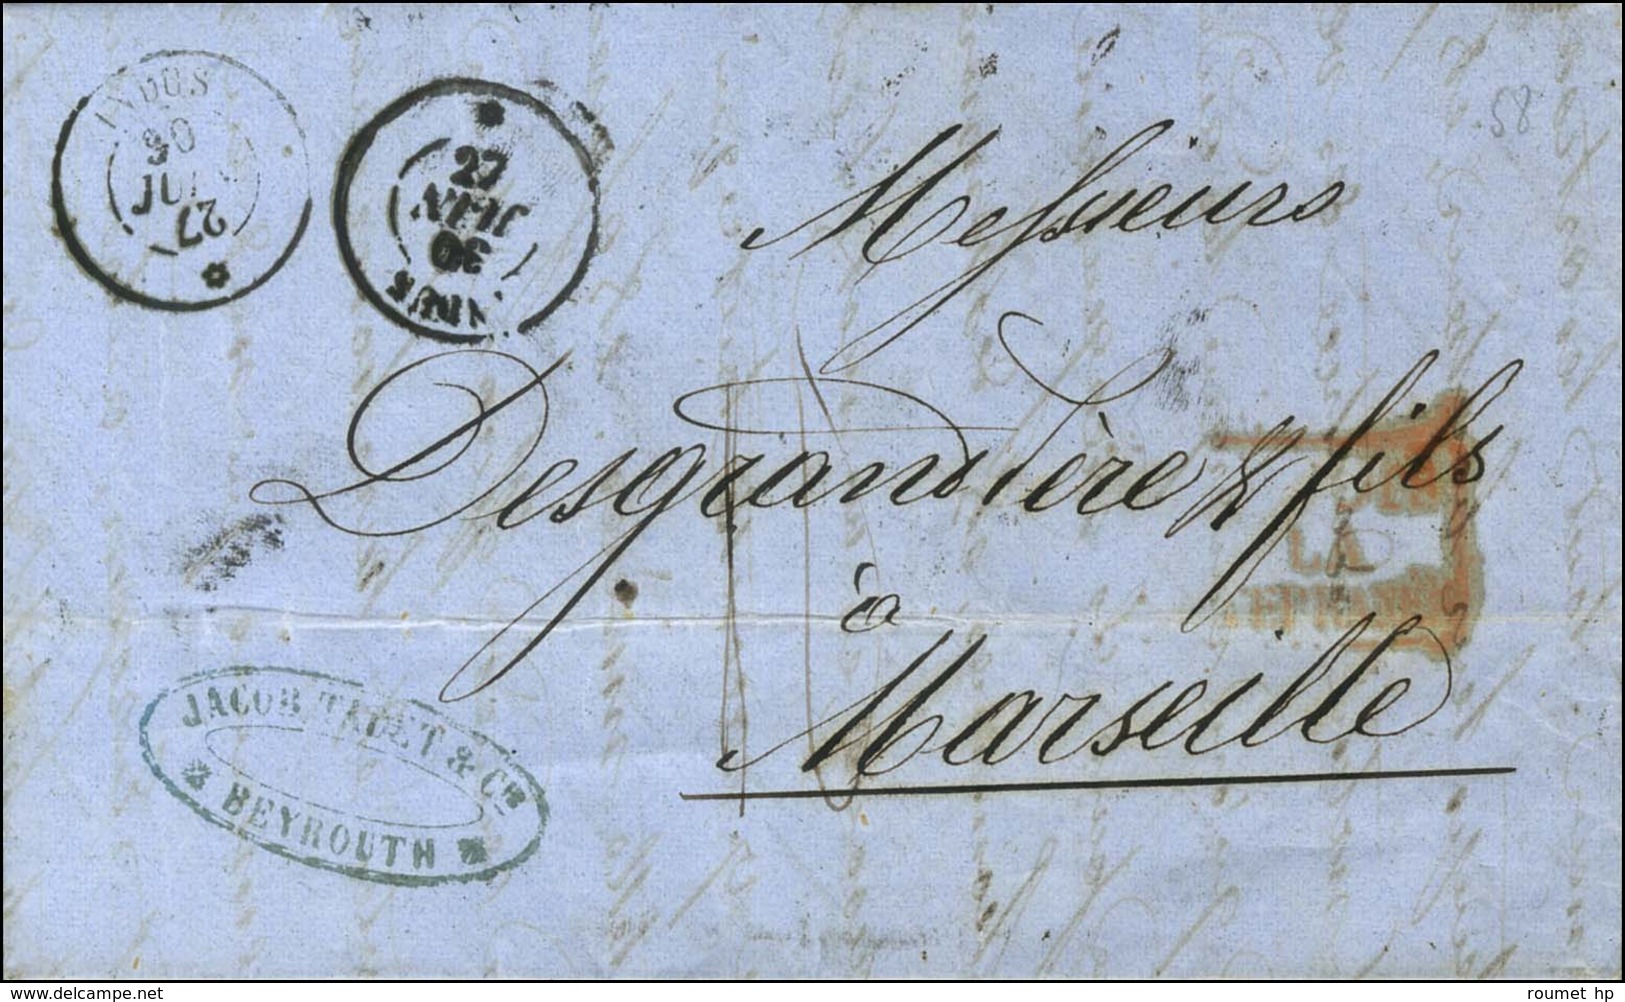 INDUS
30
JUIN
27
27
JUIN
30
INDUS
58
Messieurs
Desgrandière & fils
à
Marseille
LA
JACOB TADET & Cie
BEYROUTH
www.delcampe.net
roumet hp